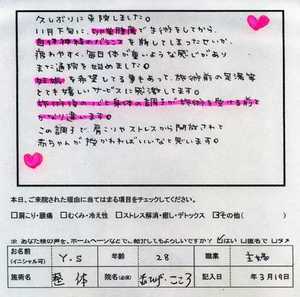 久しぶりに来院しました。
11月下旬に、切迫流産で手術をしてから、
自律神経のバランスを崩してしまったせいか
疲れやすく、毎日体が重いような感じがあり
また通院を始めました。
妊娠を希望してる事もあって、施術前の足湯等
とても嬉しいサービスに感謝してます。
施術後は心と身体の調子が施術を受ける前と
かなり違います。
この調子で、肩こりやストレスから開放されて
赤ちゃんが授かればいいなと思います。
本日、ご来院された理由に当てはまる項目をチェックしてください。
□肩こり・腰痛 □むくみ・冷え性 □ストレス解消・癒し・デトックス ☑その他( )
※あなた様の声を、ホームページなどでご紹介してもよろしいですか?☑はい □匿名で □ダメ
お名前(イニシャル可) Y.S 年齢 28 職業 主婦
施術名 整体 院名(必須) 記入日 年3月19日